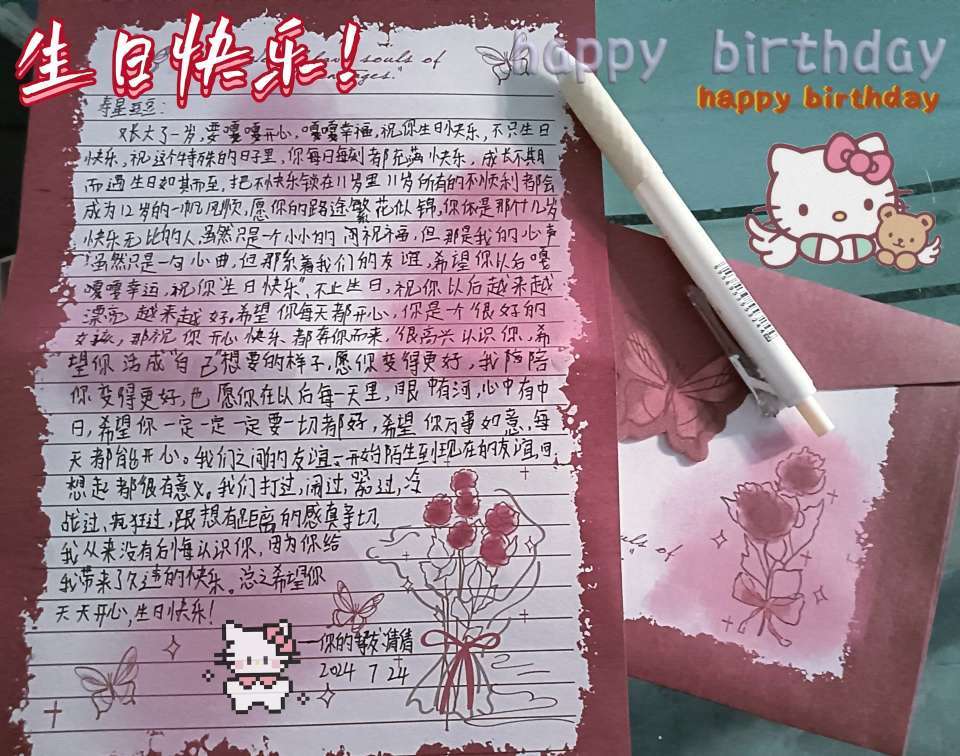 生日快乐!
happy birthday
happy birthday
souls of
寿星豆豆：
又长大了一岁，要嘎嘎开心，嘎嘎幸福，祝你生日快乐，不只生日
快乐，祝这个特殊的日子里，你每日每刻都充满快乐，成长不期
而遇生日如期而至，把不快乐锁在11岁里 11岁所有的不顺利都会
成为12岁的一帆风顺，愿你的路途繁花似锦，你依是那十几岁
快乐无比的人，虽然只是一个小小的祝福，但那是我的心声
虽然只是一句心曲，但那系着我们的友谊，希望你以后嘎
嘎嘎幸运，祝你"生日快乐"，不止生日，祝你以后越来越
漂亮，越来越好，希望你每天都开心，你是一个很好的
女孩，那祝你开心快乐都奔你而来，很高兴认识你，希
望你活成"自己"想要的样子，愿你变得更好，我陪陪
你变得更好，也愿你在以后每一天里，眼中有河，心中有中
日，希望你一定一定一定要一切都好，希望你万事如意，每
天都能开心。我们之间的友谊一开始陌生到现在的友谊，回
想起都很有意义。我们打过，闹过，哭过，冷
战过，疯狂过，跟想有距离的感真亲切
我从来没有后悔认识你，因为你给
我带来了久违的快乐。总之希望你
天天开心，生日快乐！
—你的友清清
2024 7 24
souls of